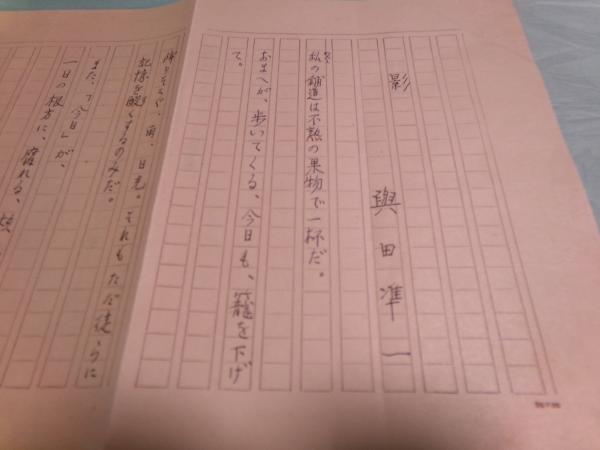 影　與田凖一
私の舗道は不熟の果物で一杯だ。
おまへが、歩いてくる、今日も、籠を下げ
て。
降りそゝぐ、雨、日光。それもたゞ徒らに
記憶を酸くするのみだ。
また、「今日」が、
一日の根方に、腐れる、